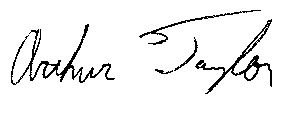 Arthur Taylor